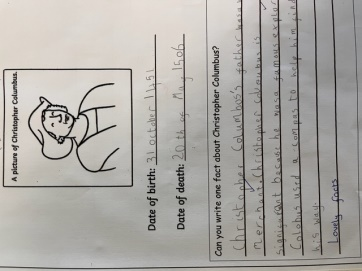 A picture of Christopher Columbus.
Date of birth: 31 october 1451
Date of death: 20 th of May 1506
Can you write one fact about Christopher Columbus?
Christopher Columbus's father was a
merchant. christopher coloumbus is
significant because he was a famous explor
Colobus used a compas to help him find
his way.
Lovely facts